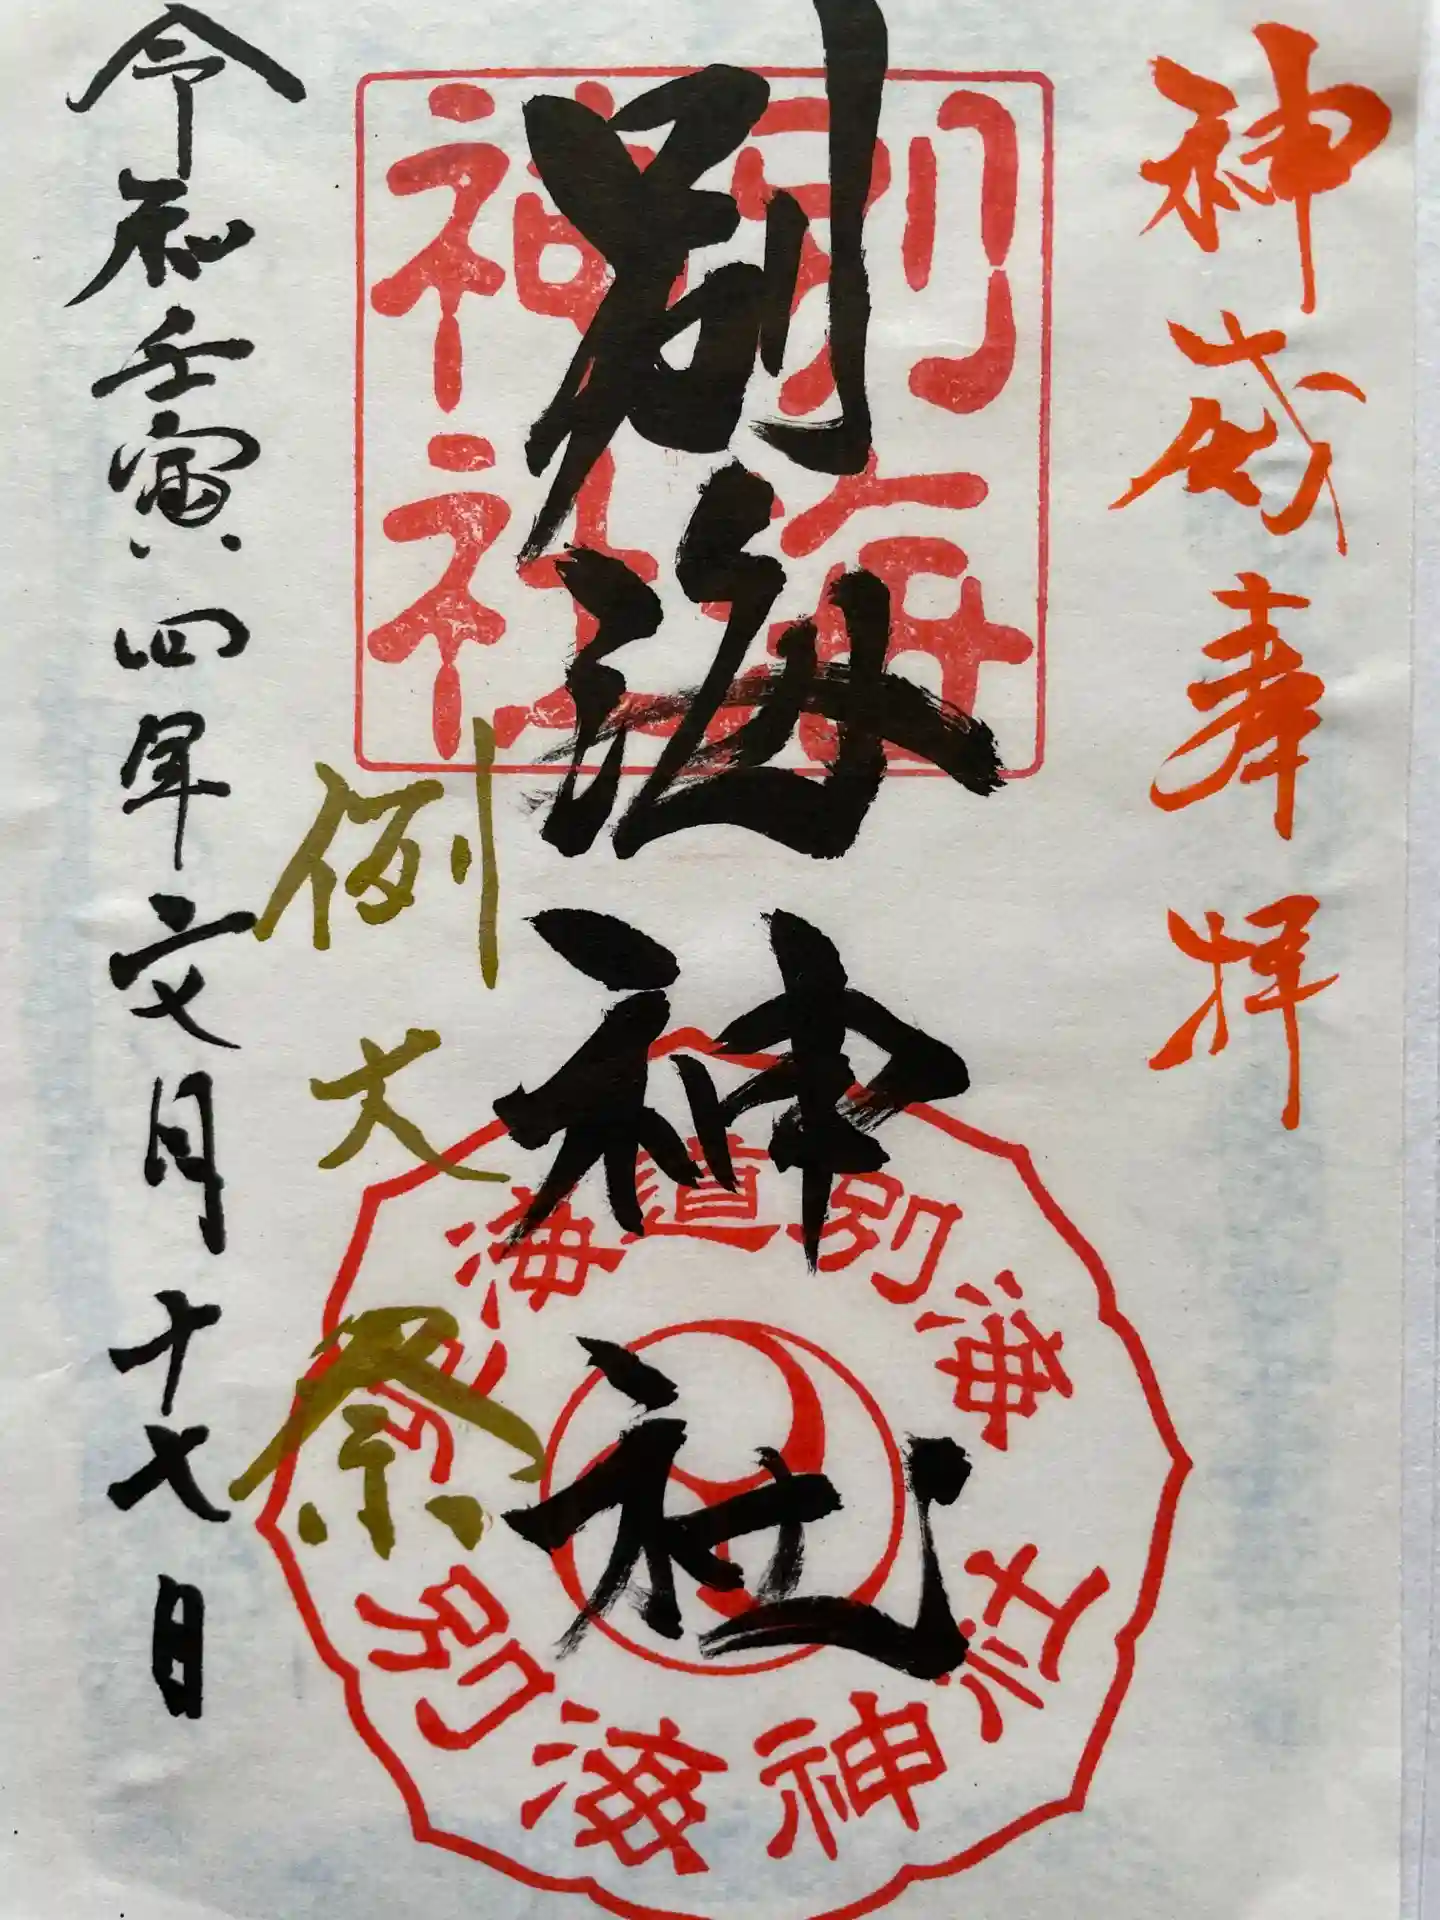 神威奉拝
別海
神社
別海神社
北海道別海
別海神社
例大祭
令和壬寅四年文月十七日